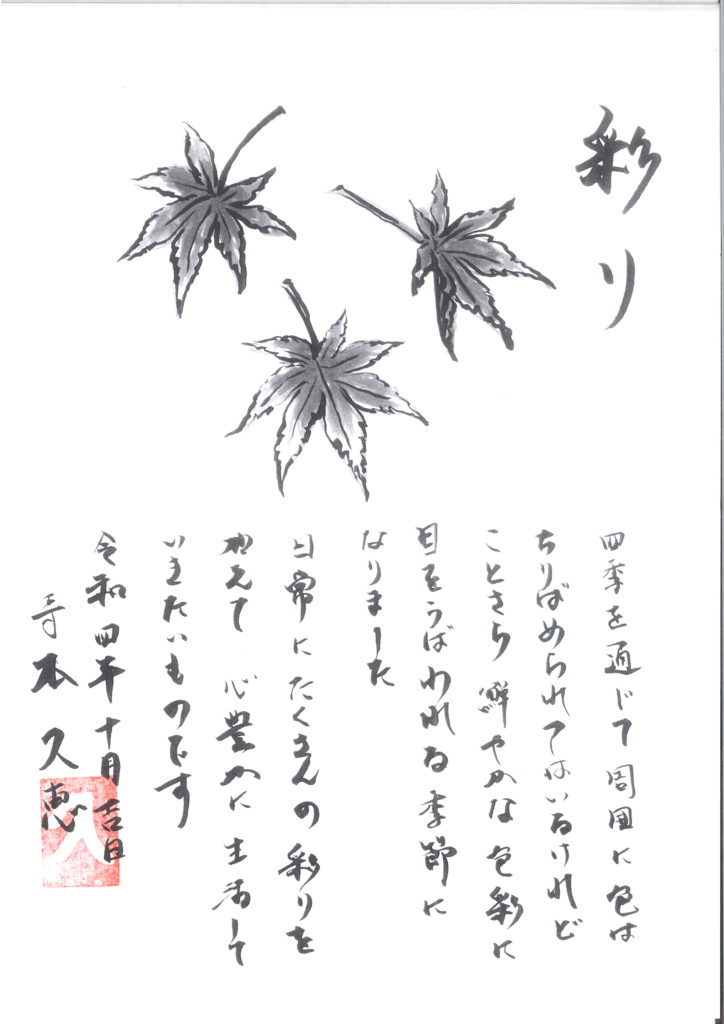 彩り
四季を通じて周囲に色は
ちりばめられてはいるけれど
ことさら鮮やかな色彩に
目をうばわれる季節に
なりました
日常にたくさんの彩りを
加えて 心豊かに生活して
いきたいものです
令和四年十月吉日
寺本久恵
久